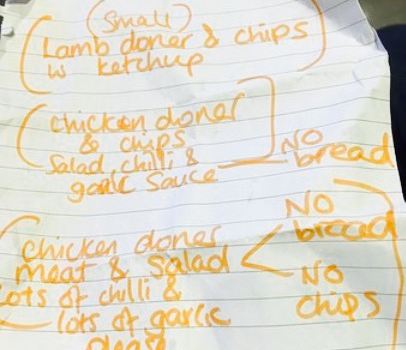 (Small)
Lamb doner & chips
w ketchup
chicken doner
& chips
Salad, chilli &
garlic Sauce
NO
bread
chicken doner
meat & Salad
Lots of chilli &
lots of garlic
please
NO
bread
NO
chips